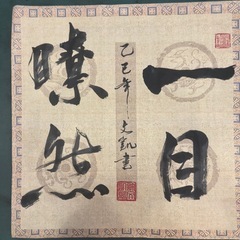 一目
瞭然
乙巳年 文凱書